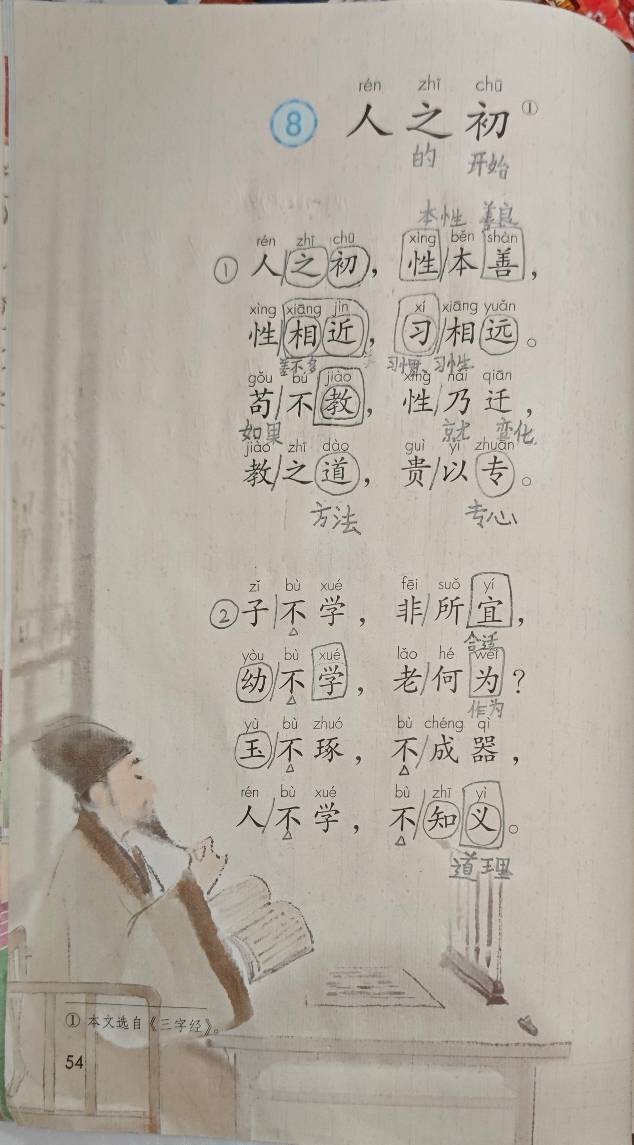 rén zhī chū
8 人之初 ①
的 开始
本性 善良
rén zhī chū xìng běn shàn
① 人/之初，性/本善，
xìng xiāng jìn xí xiāng yuǎn
性/相近，习/相远。
差不多 习惯、习性
gǒu bú jiào xìng nǎi qiān
苟/不教，性/乃迁，
如果 就 变化
jiào zhī dào guì yǐ zhuān
教/之道，贵/以专。
方法 专心
zǐ bù xué fēi suǒ yí
② 子/不学，非/所宜，
合适
yòu bù xué lǎo hé wéi
幼/不学，老/何为？
作为
yù bù zhuó bù chéng qì
玉/不琢，不/成器，
rén bù xué bù zhī yì
人/不学，不/知义。
道理
① 本文选自《三字经》。
54